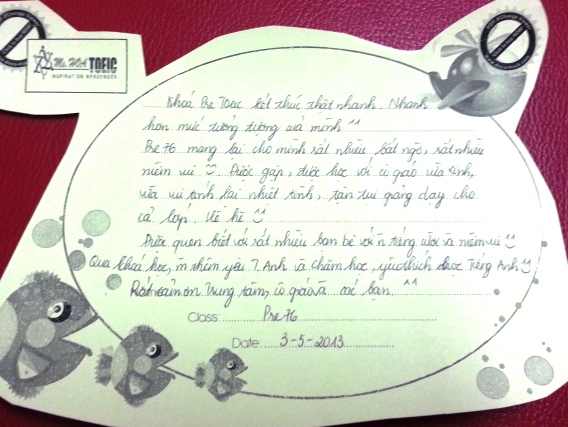 Ms. HOA TOEIC
INSPIRATION MESSENGER
Khoá Pre Toeic kết thúc thật nhanh. Nhanh
hơn mức tưởng tượng của mình ^^
Pre 76 mang lại cho mình rất nhiều bất ngờ, rất nhiều
niềm vui. Được gặp, được học với cô giáo vừa xinh,
vừa vui tính lại nhiệt tình, tận tuỵ giảng dạy cho
cả lớp. Hề hề. ^^
Được quen biết với rất nhiều bạn bè với n tiếng cười và niềm vui
Qua khoá học, m thêm yêu T. Anh và chăm học, yêu thích được Tiếng Anh
Rất cảm ơn Trung tâm, cô giáo và các bạn. ^^
Class: Pre 76
Date: 3-5-2013